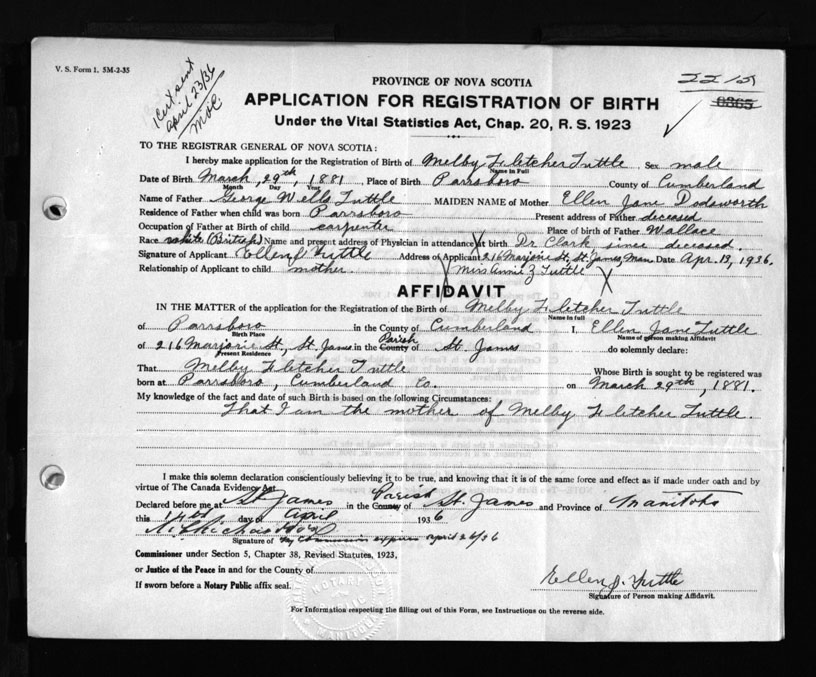 V. S. Form 1. 5M-2-35
Cert sent
April 23/36
PROVINCE OF NOVA SCOTIA
2215
0365
APPLICATION FOR REGISTRATION OF BIRTH
Under the Vital Statistics Act, Chap. 20, R. S. 1923
TO THE REGISTRAR GENERAL OF NOVA SCOTIA:
I hereby make application for the Registration of Birth of Melby Fletcher Tuttle Sex male
Name in Full
Date of Birth March, 29th, 1881 Place of Birth Parrsboro County of Cumberland
Month Day Year
Name of Father George Wells Tuttle MAIDEN NAME of Mother Ellen Jane Dodsworth
Residence of Father when child was born Parrsboro Present address of Father deceased
Occupation of Father at Birth of child carpenter Place of birth of Father Wallace
Race white (British) Name and present address of Physician in attendance at birth Dr Clark since deceased.
Signature of Applicant Ellen J Tuttle Address of Applicant 216 Marjorie St, St. James, Man. Date Apr. 13, 1936.
Relationship of Applicant to child mother. Miss Annie Z Tuttle X
AFFIDAVIT
IN THE MATTER of the application for the Registration of the Birth of Melby Fletcher Tuttle
Name in full
of Parrsboro in the County of Cumberland I, Ellen Jane Tuttle
Birth Place Name of person making Affidavit
of 216 Marjorie St, St. James in the County Parish of St. James do solemnly declare:
Present Residence
That Melby Fletcher Tuttle Whose Birth is sought to be registered was
born at Parrsboro, Cumberland Co. on March 29th, 1881.
My knowledge of the fact and date of such Birth is based on the following Circumstances:
That I am the mother of Melby Fletcher Tuttle.
I make this solemn declaration conscientiously believing it to be true, and knowing that it is of the same force and effect as if made under oath and by
virtue of The Canada Evidence Act.
Declared before me at St. James in the County Parish of St. James and Province of Manitoba
this 14th day of April 1936
Signature of My Commission expires April 26/36
Commissioner under Section 5, Chapter 38, Revised Statutes, 1923,
or Justice of the Peace in and for the County of
If sworn before a Notary Public affix seal.
NOTARY
MANITOBA
Ellen J. Tuttle
Signature of Person making Affidavit.
For Information respecting the filling out of this Form, see Instructions on the reverse side.